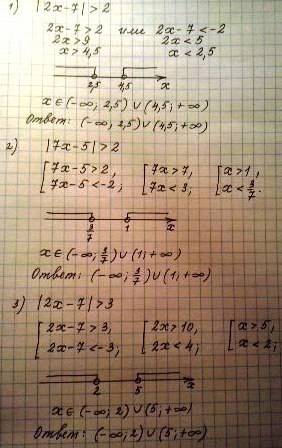 1) |2x-7|>2
2x-7>2 или 2x-7<-2
2x>9 2x<5
x>4,5 x<2,5
2,5 4,5 x
x∈(-∞; 2,5)∪(4,5; +∞)
Ответ: (-∞; 2,5)∪(4,5; +∞)
2) |7x-5|>2
[7x-5>2, [7x>7, [x>1,
7x-5<-2; 7x<3; x<3/7.
3/7 1 x
x∈(-∞; 3/7)∪(1; +∞)
Ответ: (-∞; 3/7)∪(1; +∞)
3) |2x-7|>3
[2x-7>3, [2x>10, [x>5,
2x-7<-3; 2x<4; x<2;
2 5 x
x∈(-∞; 2)∪(5; +∞)
Ответ: (-∞; 2)∪(5; +∞)